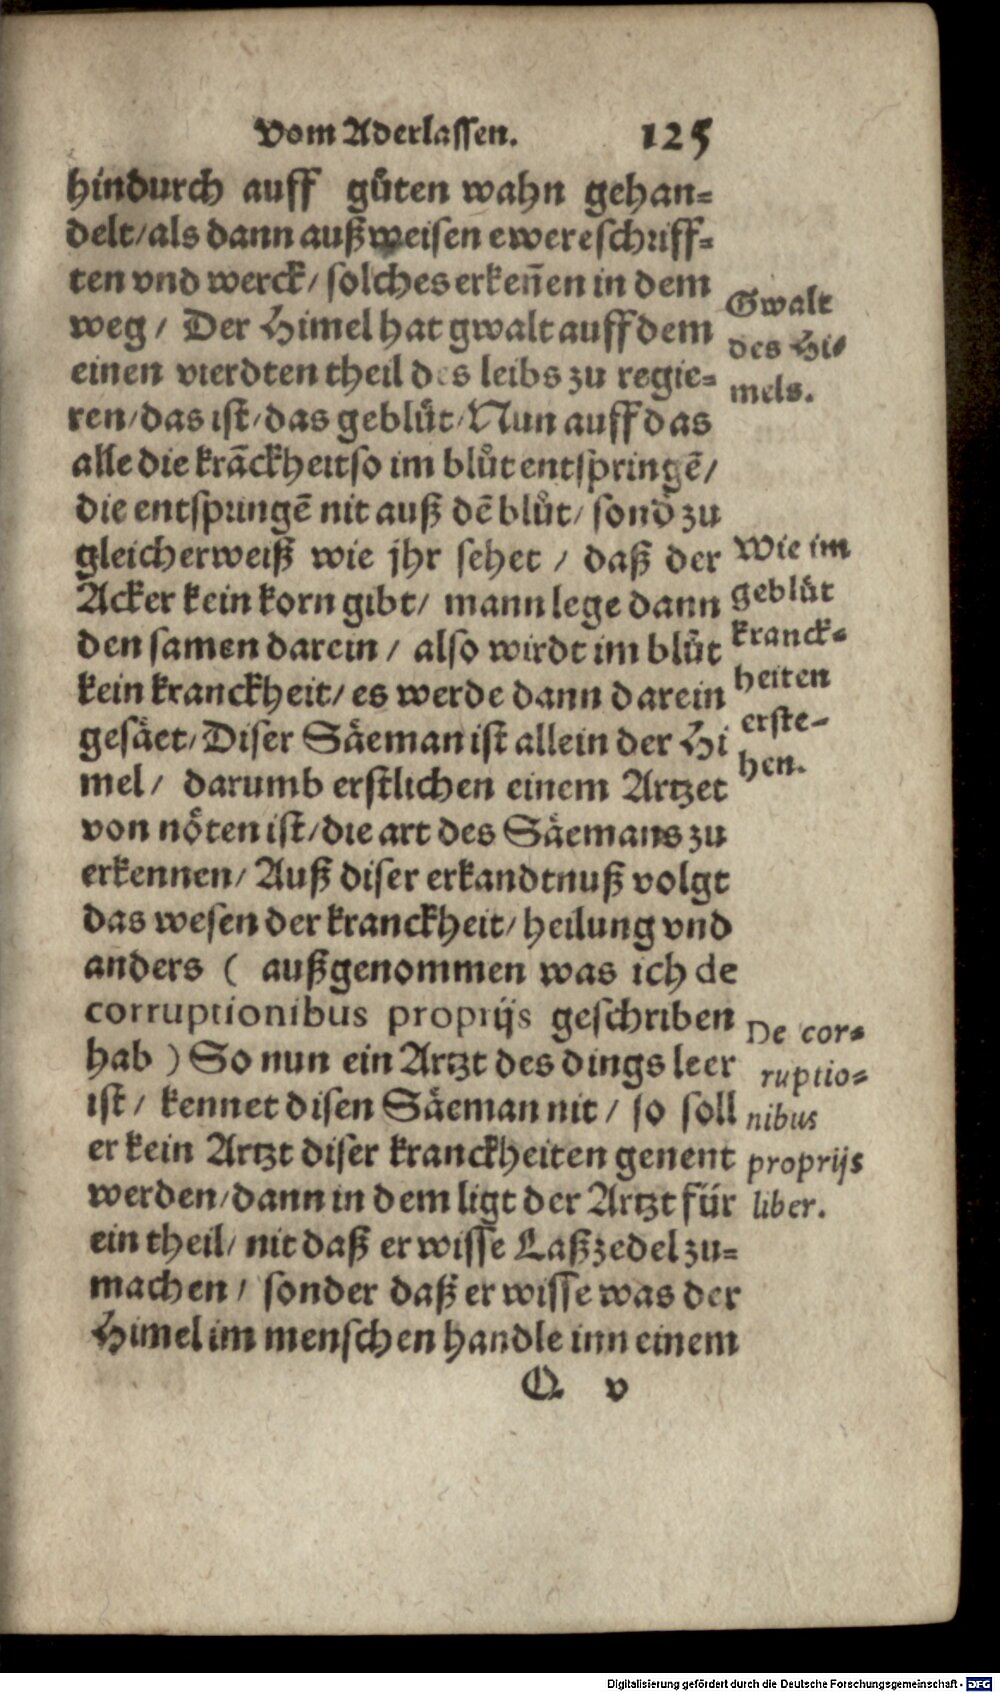 Vom Aderlassen. 125
hindurch auff gůten wahn gehan-
delt/als dann außweisen ewere schriff-
ten vnd werck/ solches erkeñen in dem
weg/ Der Himel hat gwalt auff dem
einen vierdten theil des leibs zu regie-
ren/das ist/das geblůt/Nun auff das
alle die krãckheit so im blůt entspringẽ/
die entspringẽ nit auß dẽ blůt/ sond zu
gleicherweiß wie jhr sehet / daß der
Acker kein korn gibt/ mann lege dann
den samen darein / also wirdt im blůt
kein kranckheit/ es werde dann darein
gesäet/Diser Säeman ist allein der Hi
mel/ darumb erstlichen einem Artzet
von nöten ist/die art des Säemans zu
erkennen/ Auß diser erkandtnuß volgt
das wesen der kranckheit/ heilung vnd
anders ( außgenommen was ich de
corruptionibus proprijs geschriben
hab ) So nun ein Artzt des dings leer
ist/ kennet disen Säeman nit / so soll
er kein Artzt diser kranckheiten genent
werden/dann in dem ligt der Artzt für
ein theil/ nit daß er wisse Laßzedel zu-
machen / sonder daß er wisse was der
Himel im menschen handle inn einem
Q v
Gwalt
des Hi-
mels.
Wie im
geblůt
kranck-
heiten
erste-
hen.
De cor-
ruptio-
nibus
proprijs
liber.
Digitalisierung gefördert durch die Deutsche Forschungsgemeinschaft - DFG